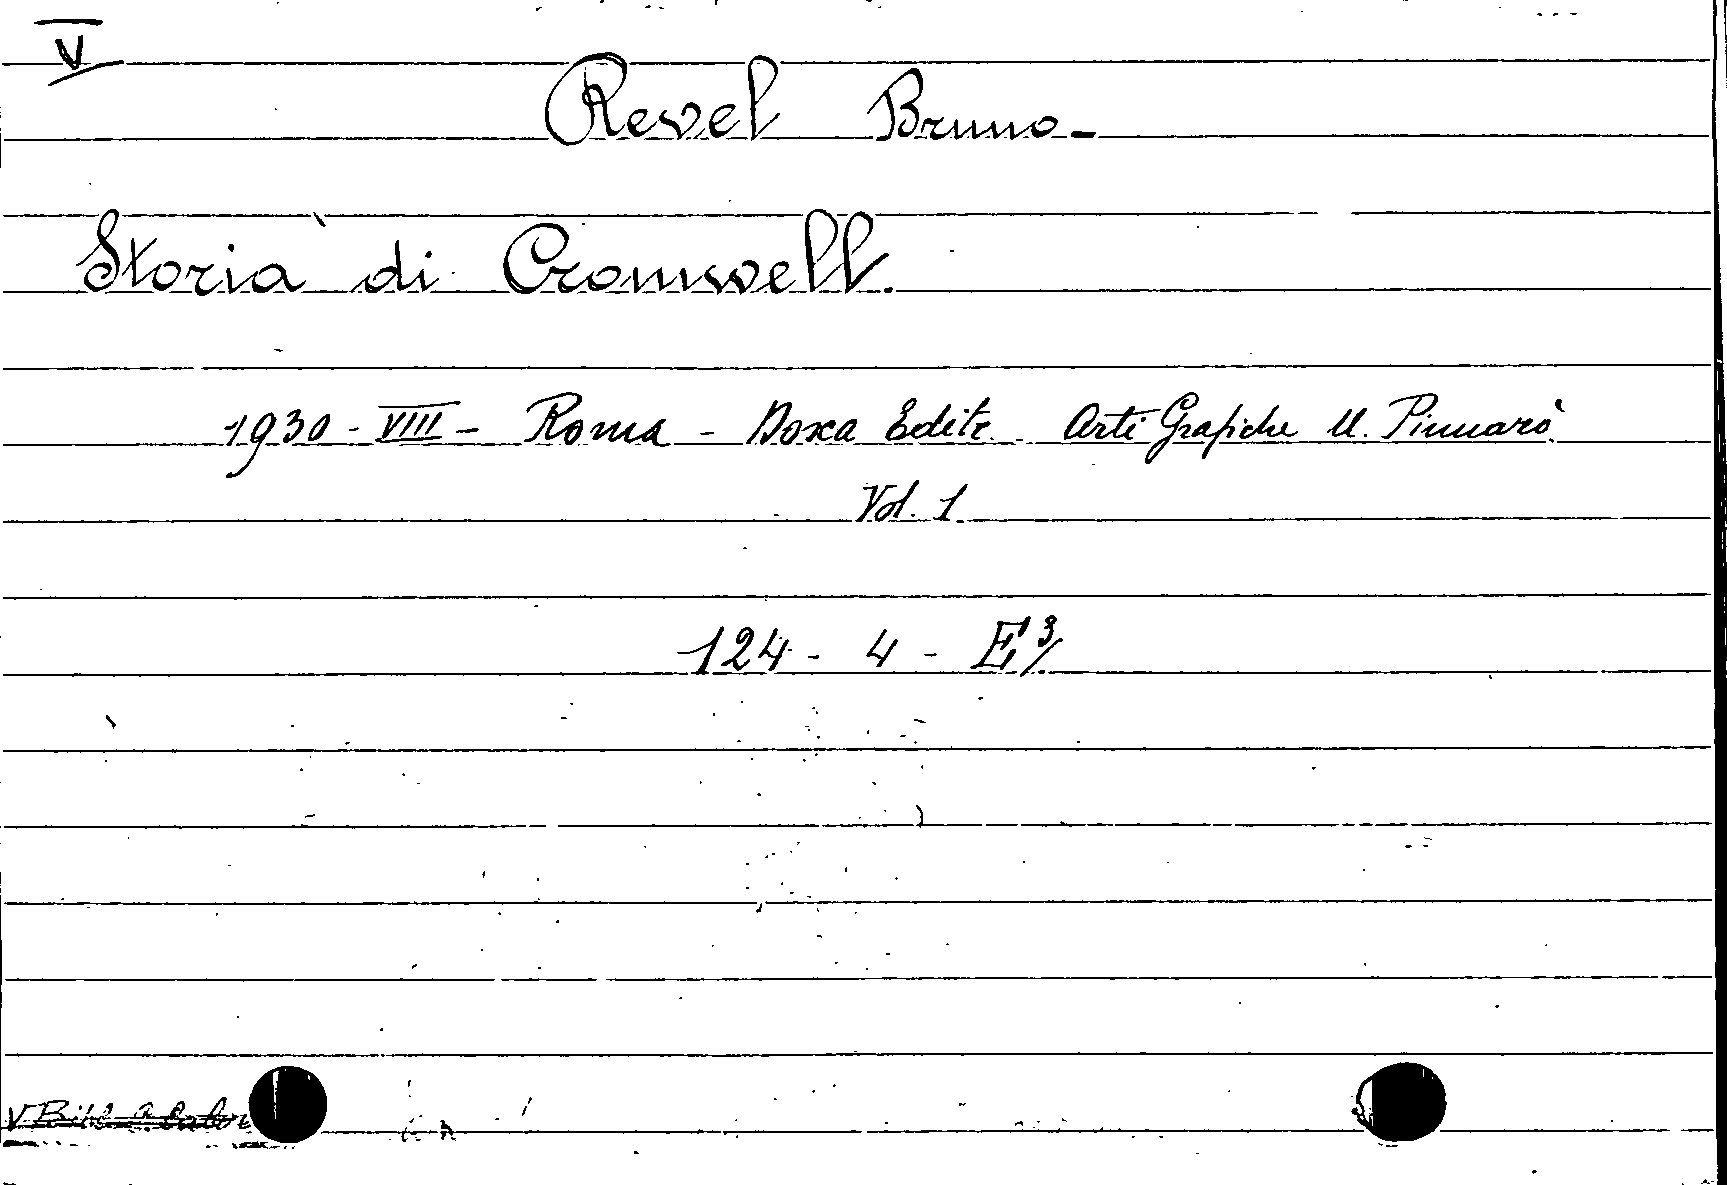 V
Revel Bruno-
Storia di Cromwell.
1930-VIII- Roma - Doxa Edite. Arti Grafiche U. Pinnarò
Vol. 1
124- 4 - E³/